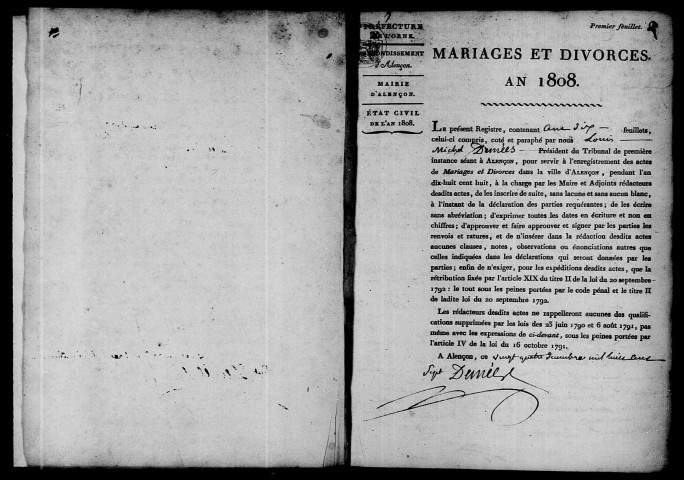 Premier feuillet.
PRÉFECTURE
DE L'ORNE.
ARRONDISSEMENT
d'Alençon.
MAIRIE
D'ALENÇON.
ÉTAT CIVIL
DE L'AN 1808.
MARIAGES ET DIVORCES.
AN 1808.
LE présent Registre, contenant feuillets,
celui-ci compris, coté et paraphé par nous Louis
Michel Président du Tribunal de première
instance séant à ALENÇON, pour servir à l'enregistrement des actes
de Mariages et Divorces dans la ville d'ALENÇON, pendant l'an
dix-huit cent huit, à la charge par les Maire et Adjoints rédacteurs
desdits actes, de les inscrire de suite, sans lacune et sans aucun blanc,
à l'instant de la déclaration des parties requérantes; de les écrire
sans abréviation; d'exprimer toutes les dates en écriture et non en
chiffres; d'approuver et faire approuver et signer par les parties les
renvois et ratures, et de n'insérer dans la rédaction desdits actes
aucunes clauses, notes, observations ou énonciations autres que
celles indiquées dans les déclarations qui seront données par les
parties; enfin de n'exiger, pour les expéditions desdits actes, que la
rétribution fixée par l'article XIX du titre II de la loi du 20 septembre
1792: le tout sous les peines portées par le code pénal et le titre II
de ladite loi du 20 septembre 1792.
Les rédacteurs desdits actes ne rappelleront aucunes des qualifi-
cations supprimées par les lois des 23 juin 1790 et 6 août 1791, pas
même avec les expressions de ci-devant, sous les peines portées par
l'article IV de la loi du 16 octobre 1791.
A Alençon, ce vingt quatre mil huit cent
Sept